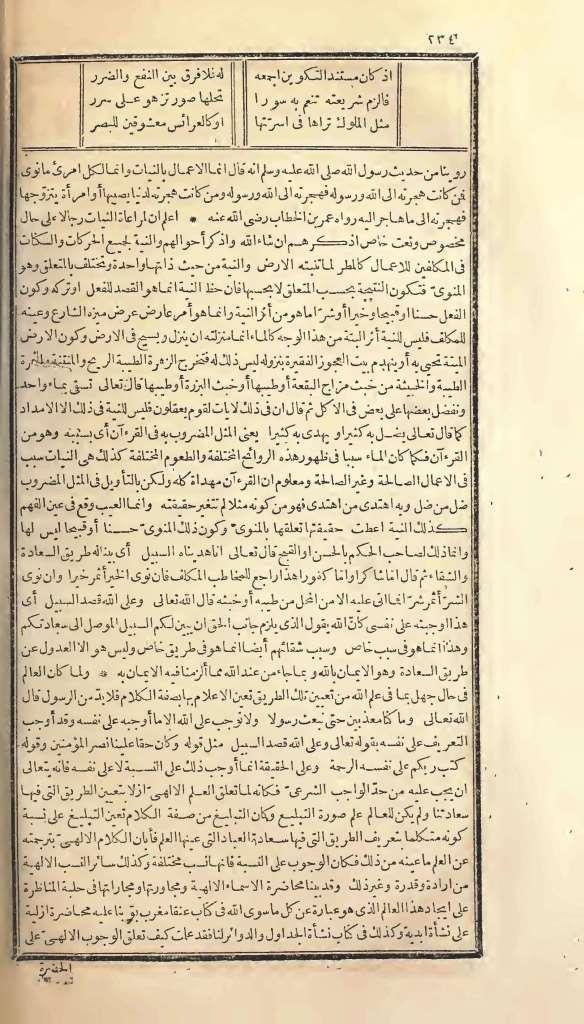 ٢٣٤
اذ كان مستند التكوين اجمعه له فلا فرق بين النفع والضرر
فالزم شريعته تنعم به سورا تحلها صور تزهو على سرر
مثل الملوك تراها فى اسرتها اوكالعرائس معشوقين للبصر
روينا من حديث رسول الله صلى الله عليه وسلم انه قال انما الاعمال بالنيات وانما لكل امرئ ما نوى
فمن كانت هجرته الى الله ورسوله فهجرته الى الله ورسوله ومن كانت هجرته لدنيا يصيبها أوامرأة يتزوّجها
فهجرته الى ما هاجر اليه رواه عمر بن الخطاب رضى الله عنه * اعلم ان لمراعاة النيات رجالا على حال
مخصوص ونعت خاص اذكرهم ان شاء الله واذكر أحوالهم والنية لجميع الحركات والسكنات
فى المكلفين للاعمال كالمطر لما تنبته الارض والنية من حيث ذاتها واحدة وتختلف بالمتعلق وهو
المنوىّ فتكون النتيجة بحسب المتعلق لا بحسبها فان حظ النية انما هو القصد للفعل اوتركه وكون
الفعل حسنا او قبيحا وخيرا أوشرّا ما هو من أثر النية وانما هو أمر عارض عرض ميزه الشارع وعينه
للمكلف فليس للنية أثر البتة من هذا الوجه كالماء انما منزلته ان ينزل ويسيح فى الارض وكون الارض
الميتة تحيى به أو ينهدم بيت العجوز الفقيرة بنزوله ليس ذلك له فتخرج الزهرة الطيبة الريح والمنتنة والثمرة
الطيبة والخبيثة من خبث مزاج البقعة أوطيبها أوخبث البزرة أوطيبها قال تعالى تسقى بماء واحد
ونفضل بعضها على بعض فى الاكل ثم قال ان فى ذلك لايات لقوم يعقلون فليس للنية فى ذلك الا الامداد
كما قال تعالى يضل به كثيرا ويهدى به كثيرا يعنى المثل المضروب به فى القرءآن أى بسببه وهو من
القرءآن فكما كان الماء سببا فى ظهور هذه الروائح المختلفة والطعوم المختلفة كذلك هى النيات سبب
فى الاعمال الصالحة وغير الصالحة ومعلوم ان القرءآن مهداة كله ولكن بالتأويل فى المثل المضروب
ضل من ضل وبه اهتدى من اهتدى فهو من كونه مثلا لم تتغير حقيقته وانما العيب وقع فى عين الفهم
كذلك النية اعطت حقيقتها تعلقها بالمنوىّ وكون ذلك المنوىّ حسنا أو قبيحا ليس لها
وانما ذلك لصاحب الحكم بالحسن او القبح قال تعالى انا هديناه السبيل أى بينا له طريق السعادة
والشقاء ثم قال امّا شاكرا وامّا كفورا هذا راجع للمخاطب المكلف فان نوى الخير أثمر خيرا وان نوى
الشرّ أثمر شرّا فما اتى عليه الامن المحل من طيبه أوخبثه قال الله تعالى وعلى الله قصد السبيل أى
هذا اوجبته على نفسى كأنّ الله يقول الذى يلزم جانب الحق ان يبين لكم السبيل الموصل الى سعادتكم
وهذا انما هو فى سبب خاص وسبب شقائهم أيضا انما هو فى طريق خاص وليس هو الا العدول عن
طريق السعادة وهو الايمان بالله وبما جاء من عند الله مما ألزمنا فيه الايمان به * ولما كان العالم
فى حال جهل بما فى علم الله من تعيين تلك الطريق تعين الاعلام بها بصفة الكلام فلا بد من الرسول قال
الله تعالى وما كنا معذبين حتى نبعث رسولا ولا نوجب على الله الا ما أوجبه على نفسه وقد أوجب
التعريف على نفسه بقوله تعالى وعلى الله قصد السبيل مثل قوله وكان حقا علينا نصر المؤمنين وقوله
كتب ربكم على نفسه الرحمة وعلى الحقيقة انما أوجب ذلك على النسبة لا على نفسه فانه يتعالى
ان يجب عليه من حدّ الواجب الشرعىّ فكانه لما تعلق العلم الالهىّ ازلا بتعيين الطريق التى فيها
سعادتنا ولم يكن للعالم علم صورة التبليغ وكان التبليغ من صفة الكلام تعين التبليغ على نسبة
كونه متكلما بتعريف الطريق التى فيها سعادة العباد التى عينها العلم فأبان الكلام الالهىّ بترجمته
عن العلم ما عينه من ذلك فكان الوجوب على النسبة فانها نسب مختلفة وكذلك سائر النسب الالهية
من ارادة وقدرة وغير ذلك وقد بينا محاضرة الاسماء الالهية ومحاورتها ومجاراتها فى حلبة المناظرة
على ايجاد هذا العالم الذى هو عبارة عن كل ما سوى الله فى كتاب عنقا مغرب بوّبنا عليه محاضرة ازلية
على نشأة ابدية وكذلك فى كتاب نشأة الجداول والدوائر لنا فقد علمت كيف تعلق الوجوب الالهىّ على
الحضرة